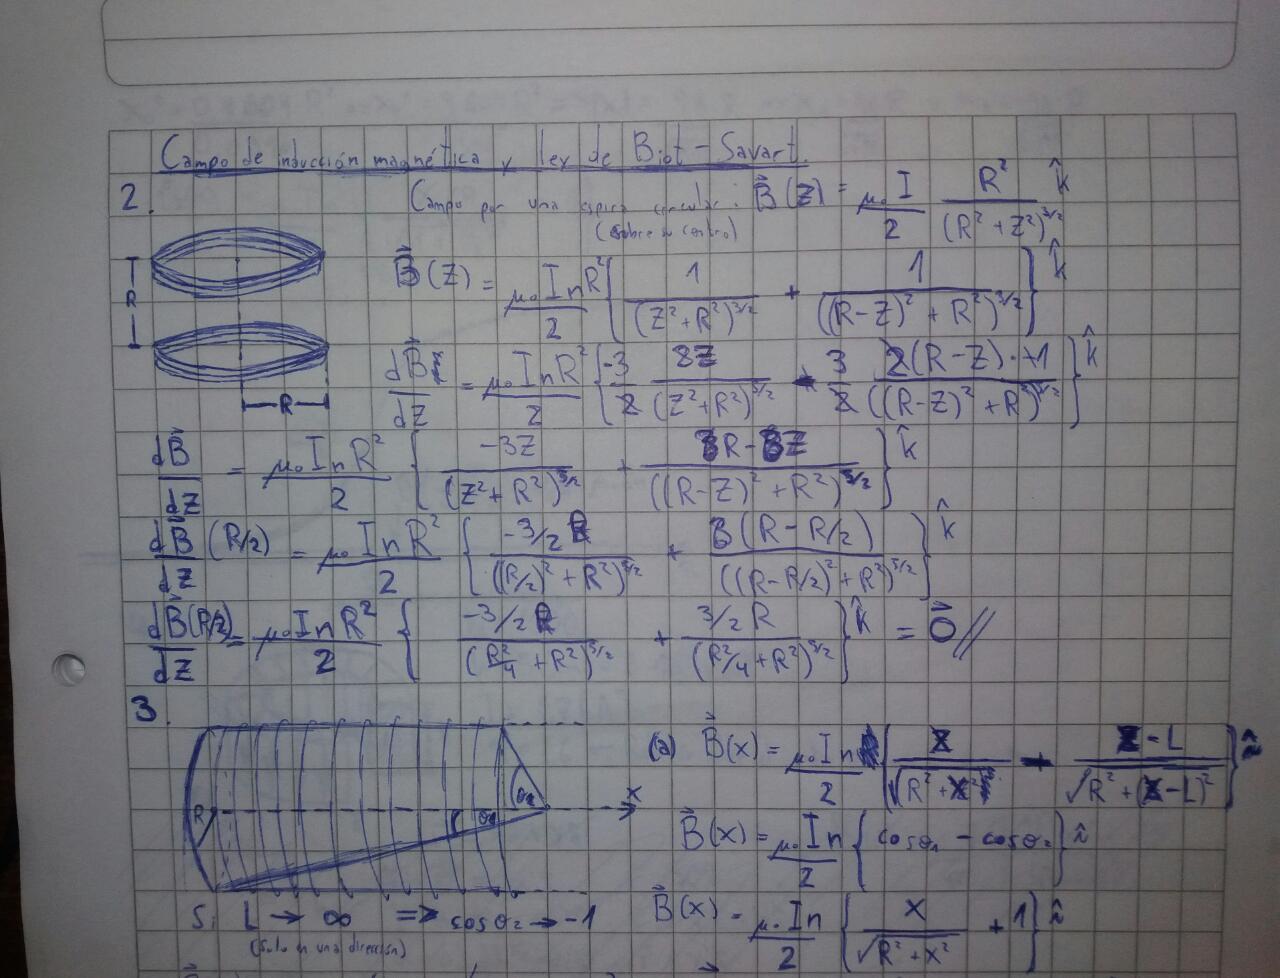 Campo de inducción magnética y ley de Biot-Savart.
2. Campo por una espira circular: B⃗(z) = μ₀I/2 R²/(R² + z²)^3/2 k̂
(sobre su centro)
B⃗(z) = μ₀InR²/2 { 1/(z² + R²)^3/2 + 1/((R-z)² + R²)^3/2 } k̂
R
R
dB⃗/dz = μ₀InR²/2 { -3/2 2z/(z² + R²)^5/2 + 3/2 2(R-z)·+1/((R-z)² + R²)^5/2 } k̂
dB⃗/dz = μ₀InR²/2 { -3z/(z² + R²)^5/2 + 3R-3z/((R-z)² + R²)^5/2 } k̂
dB⃗/dz (R/2) = μ₀InR²/2 { -3/2 R/((R/2)² + R²)^5/2 + 3(R-R/2)/((R-R/2)² + R²)^5/2 } k̂
dB⃗(R/2)/dz = μ₀InR²/2 { -3/2 R/(R²/4 + R²)^5/2 + 3/2 R/(R²/4 + R²)^5/2 } k̂ = 0⃗ //
3.
(a) B⃗(x) = μ₀In/2 { x/√R² + x² - x-L/√R² + (x-L)² } î
R θ₁ θ₂ x
B⃗(x) = μ₀In/2 { cosθ₁ - cosθ₂ } î
Si L → ∞ => cosθ₂ → -1
(solo en una dirección)
B⃗(x) = μ₀In/2 { x/√R² + x² + 1 } î